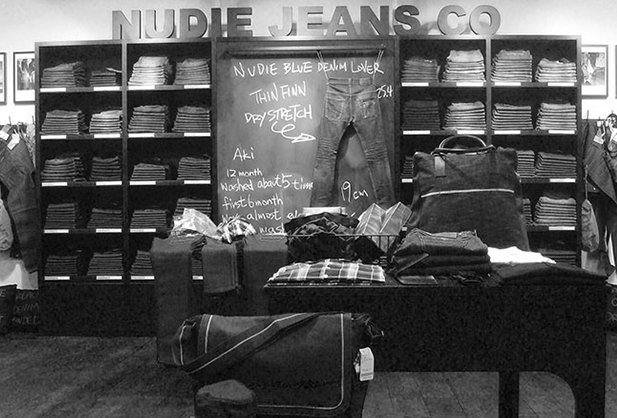 NUDIE JEANS CO
NUDIE BLUE DENIM LOVER
THIN FINN
DRY STRETCH
25.4
Aki
12 month
Washed about 5 time
first 6 month
Was almost
wash
19 cm